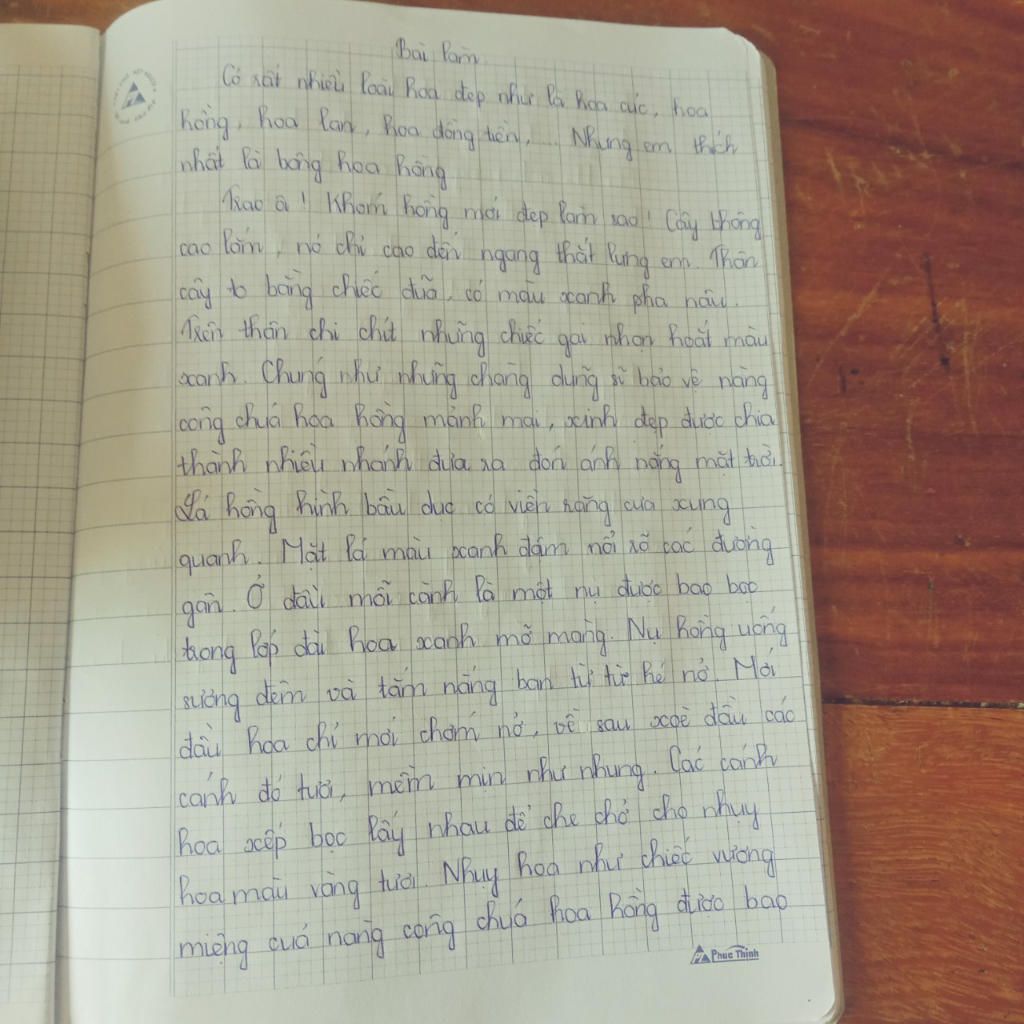 Bài làm
Có rất nhiều loài hoa đẹp như là hoa cúc, hoa
hồng, hoa lan, hoa đồng tiền,... Nhưng em thích
nhất là bông hoa hồng
Trao ôi! Khóm hồng mới đẹp làm sao! Cây không
cao lắm, nó chỉ cao đến ngang thắt lưng em. Thân
cây to bằng chiếc đũa, có màu xanh pha nâu.
Trên thân chi chít những chiếc gai nhọn hoắt màu
xanh. Chúng như những chàng dũng sĩ bảo vệ nàng
công chúa hoa hồng mảnh mai, xinh đẹp được chia
thành nhiều nhánh đưa ra đón ánh nắng mặt trời.
Lá hồng hình bầu dục có viền răng cưa xung
quanh. Mặt lá màu xanh đậm nổi rõ các đường
gân. Ở đầu mỗi cành là một nụ được bao bọc
trong lớp đài hoa xanh mỡ màng. Nụ hồng uống
sương đêm và tắm nắng ban từ từ hé nở. Mới
đầu hoa chỉ mới chớm nở, về sau xoè đều các
cánh đỏ tươi, mềm mịn như nhung. Các cánh
hoa xếp bọc lấy nhau để che chở cho nhụy
hoa màu vàng tươi. Nhụy hoa như chiếc vương
miệng cuả nàng công chúa hoa hồng được bao
Phuc Thinh